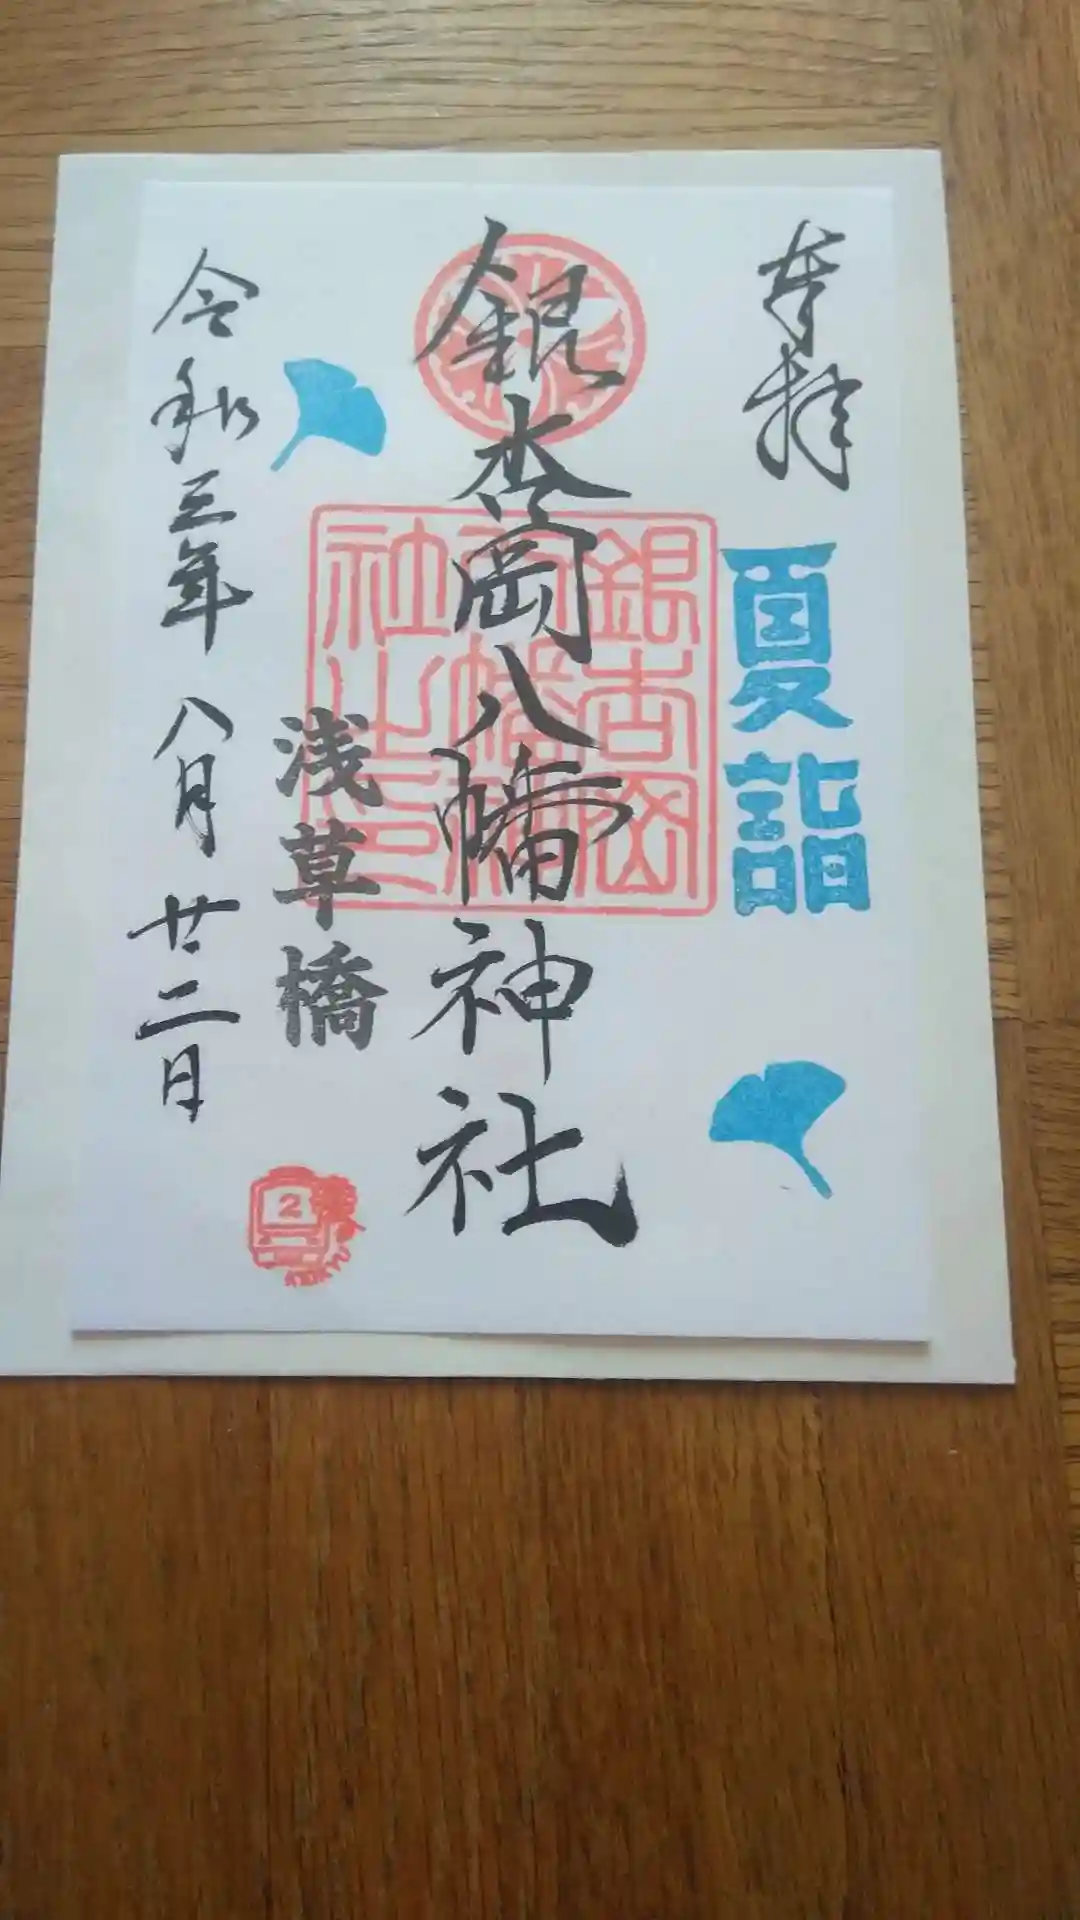 奉拝
夏詣
銀杏岡八幡神社
銀杏岡
八幡神
社之印
浅草橋
令和三年八月廿二日
2
KEIKYU